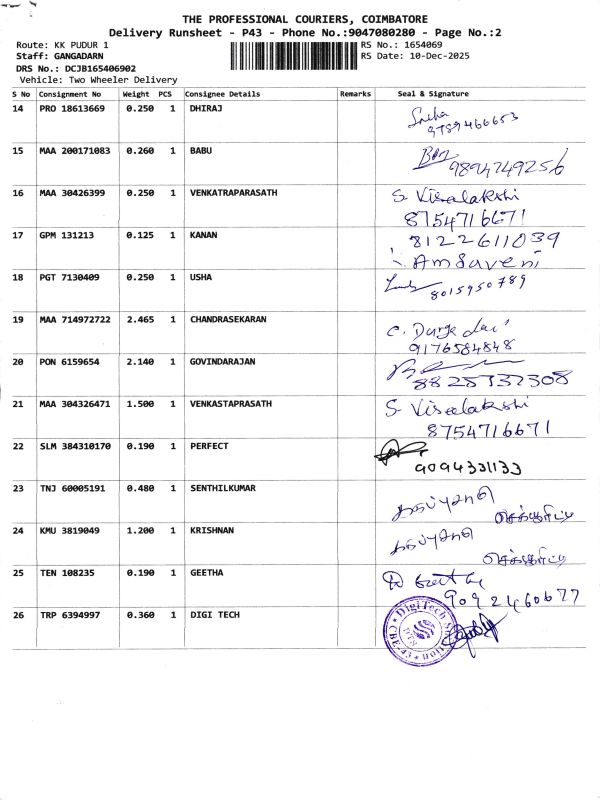 THE PROFESSIONAL COURIERS, COIMBATORE
Delivery Runsheet - P43 - Phone No.:9047080280 - Page No.:2
Route: KK PUDUR 1
RS No.: 1654069
Staff: GANGADARN
RS Date: 10-Dec-2025
DRS No.: DCJB165406902
Vehicle: Two Wheeler Delivery
S No Consignment No Weight PCS Consignee Details Remarks Seal & Signature
14 PRO 18613669 0.250 1 DHIRAJ
9789466653
15 MAA 200171083 0.260 1 BABU
9894749256
16 MAA 30426399 0.250 1 VENKATRAPARASATH S. Visalakshi
8754716671
17 GPM 131213 0.125 1 KANAN 8122611039
Amsaveni
18 PGT 7130409 0.250 1 USHA
8015950789
19 MAA 714972722 2.465 1 CHANDRASEKARAN
C. Durga devi
9176584848
20 PON 6159654 2.140 1 GOVINDARAJAN
21 MAA 304326471 1.500 1 VENKASTAPRASATH S. Visalakshi
8754716671
22 SLM 384310170 0.190 1 PERFECT
9094331133
23 TNJ 60005191 0.480 1 SENTHILKUMAR
24 KMU 3819049 1.200 1 KRISHNAN
25 TEN 108235 0.190 1 GEETHA
9092460677
26 TRP 6394997 0.360 1 DIGI TECH